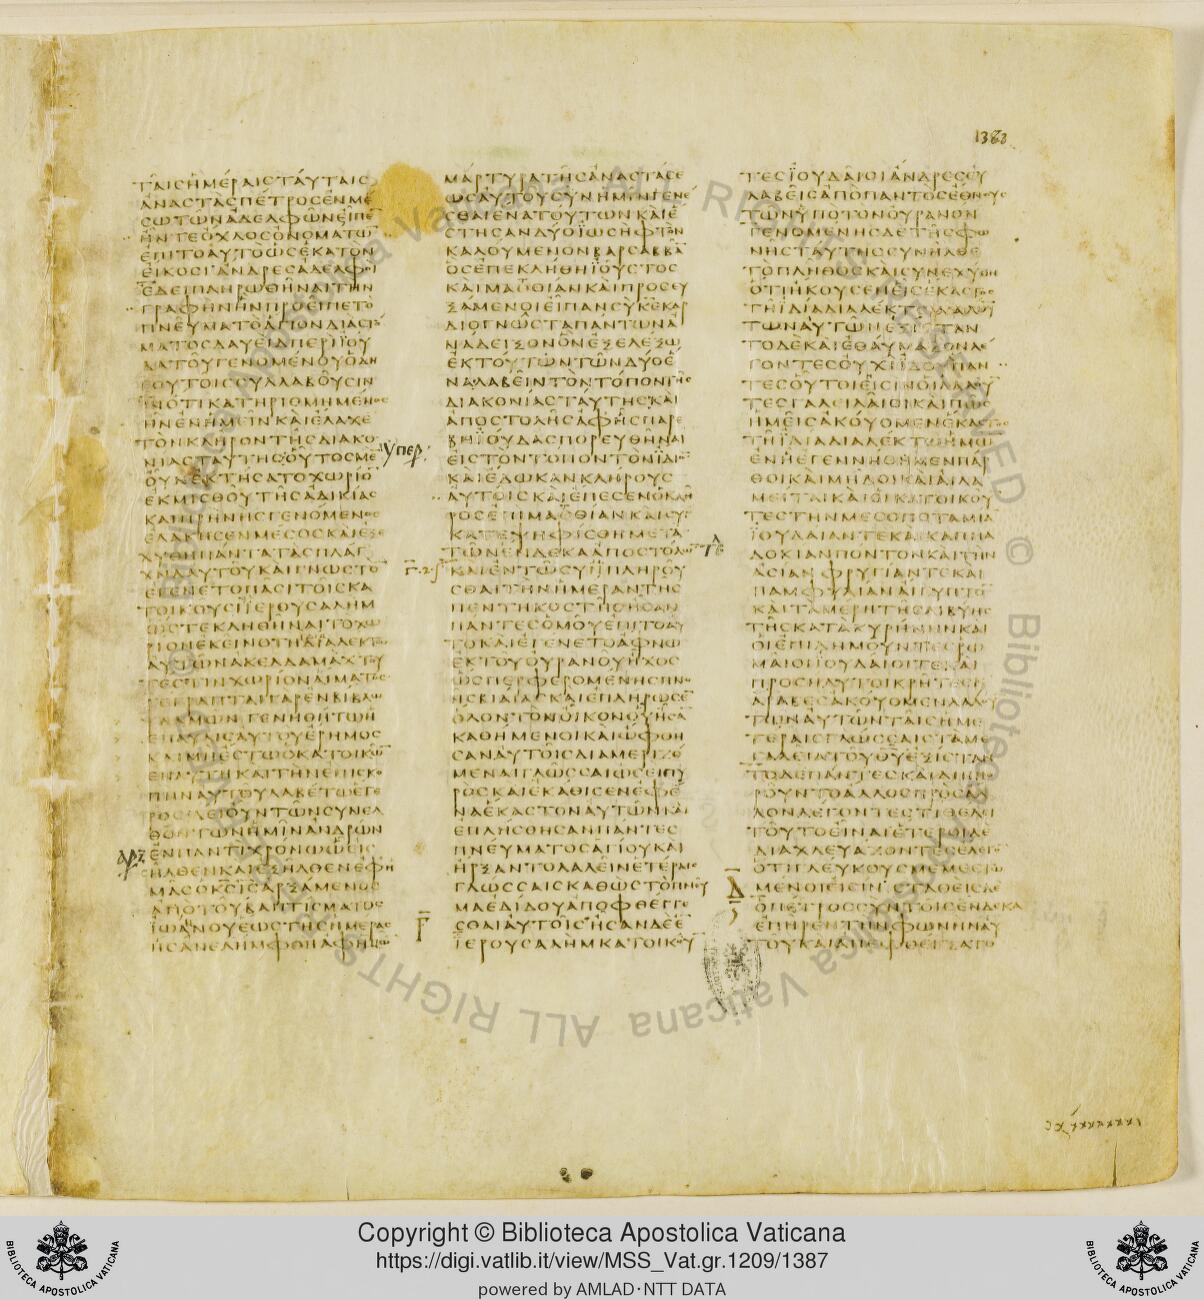 1383
ΤΑΙΣΗΜΕΡΑΙΣΤΑΥΤΑΙΣ
ΑΝΑΣΤΑΣΠΕΤΡΟΣΕΝΜΕ
ΣΩΤΩΝΑΔΕΛΦΩΝΕΙΠΕ
ΗΝΤΕΟΧΛΟΣΟΝΟΜΑΤΩ
ΕΠΙΤΟΑΥΤΟΩΣΕΚΑΤΟΝ
ΕΙΚΟΣΙΑΝΔΡΕΣΑΔΕΛΦΟΙ
ΕΔΕΙΠΛΗΡΩΘΗΝΑΙΤΗΝ
ΓΡΑΦΗΝΗΝΠΡΟΕΙΠΕΤΟ
ΠΝΕΥΜΑΤΟΑΓΙΟΝΔΙΑΣΤΟ
ΜΑΤΟΣΔΑΥΕΙΔΠΕΡΙΙΟΥ
ΔΑΤΟΥΓΕΝΟΜΕΝΟΥΟΔΗ
ΓΟΥΤΟΙΣΣΥΛΛΑΒΟΥΣΙΝ
ΙΝΟΤΙΚΑΤΗΡΙΘΜΗΜΕΝΟΣ
ΗΝΕΝΗΜΕΙΝΚΑΙΕΛΑΧΕ
ΤΟΝΚΛΗΡΟΝΤΗΣΔΙΑΚΟ
ΝΙΑΣΤΑΥΤΗΣΟΥΤΟΣΜΕ
ΥΠΕΡ
ΕΚΜΙΣΘΟΥΤΗΣΑΔΙΚΙΑΣ
ΚΑΙΠΡΗΝΗΣΓΕΝΟΜΕΝΟΣ
ΕΛΑΚΗΣΕΝΜΕΣΟΣΚΑΙΕΞΕ
ΧΥΘΗΠΑΝΤΑΤΑΣΠΛΑΓ
ΧΝΑΑΥΤΟΥΚΑΙΓΝΩΣΤΟ
ΕΓΕΝΕΤΟΠΑΣΙΤΟΙΣΚΑ
ΤΟΙΚΟΥΣΙΙΕΡΟΥΣΑΛΗΜ
ΩΣΤΕΚΛΗΘΗΝΑΙΤΟΧΩ
ΡΙΟΝΕΚΕΙΝΟΤΗΔΙΑΛΕΚΤΩ
ΑΥΤΩΝΑΚΕΛΔΑΜΑΧΤΟΥ
ΤΕΣΤΙΝΧΩΡΙΟΝΑΙΜΑΤΟΣ
ΓΕΓΡΑΠΤΑΙΓΑΡΕΝΒΙΒΛΩ
ΨΑΛΜΩΝΓΕΝΗΘΗΤΩΗ
ΕΠΑΥΛΙΣΑΥΤΟΥΕΡΗΜΟΣ
ΚΑΙΜΗΕΣΤΩΟΚΑΤΟΙΚΩ
ΕΝΑΥΤΗΚΑΙΤΗΝΕΠΙΣΚΟ
ΠΗΝΑΥΤΟΥΛΑΒΕΤΩΕΤΕ
ΡΟΣΔΕΙΟΥΝΤΩΝΣΥΝΕΛ
ΘΟΝΤΩΝΗΜΙΝΑΝΔΡΩΝ
ΕΝΠΑΝΤΙΧΡΟΝΩΩΕΙΣ
ΗΛΘΕΝΚΑΙΕΞΗΛΘΕΝΕΦΗ
ΜΑΣΟΚΣΙΣΑΡΞΑΜΕΝΟΣ
ΑΠΟΤΟΥΒΑΠΤΙΣΜΑΤΟΣ
ΙΩΑΝΟΥΕΩΣΤΗΣΗΜΕΡΑΣ
ΗΣΑΝΕΛΗΜΦΘΗΑΦΗΜΩ
ΜΑΡΤΥΡΑΤΗΣΑΝΑΣΤΑΣΕ
ΩΣΑΥΤΟΥΣΥΝΗΜΙΝΓΕΝΕ
ΣΘΑΙΕΝΑΤΟΥΤΩΝΚΑΙΕ
ΣΤΗΣΑΝΔΥΟΙΩΣΗΦΤΟΝ
ΚΑΛΟΥΜΕΝΟΝΒΑΡΣΑΒΒΑ
ΟΣΕΠΕΚΛΗΘΗΙΟΥΣΤΟΣ
ΚΑΙΜΑΘΘΙΑΝΚΑΙΠΡΟΣΕΥ
ΞΑΜΕΝΟΙΕΙΠΑΝΣΥΚΕΚΑΡ
ΔΙΟΓΝΩΣΤΑΠΑΝΤΩΝΑ
ΝΑΔΕΙΞΟΝΟΝΕΞΕΛΕΞΩ
ΕΚΤΟΥΤΩΝΤΩΝΔΥΟΕ
ΝΑΛΑΒΕΙΝΤΟΝΤΟΠΟΝΤΗΣ
ΔΙΑΚΟΝΙΑΣΤΑΥΤΗΣΚΑΙ
ΑΠΟΣΤΟΛΗΣΑΦΗΣΠΑΡΕ
ΒΗΙΟΥΔΑΣΠΟΡΕΥΘΗΝΑΙ
ΕΙΣΤΟΝΤΟΠΟΝΤΟΝΙΔΙΟ
ΚΑΙΕΔΩΚΑΝΚΛΗΡΟΥΣ
ΑΥΤΟΙΣΚΑΙΕΠΕΣΕΝΟΚΛΗ
ΡΟΣΕΠΙΜΑΘΘΙΑΝΚΑΙΣΥΓ
ΚΑΤΕΨΗΦΙΣΘΗΜΕΤΑ
ΤΩΝΕΝΔΕΚΑΑΠΟΣΤΟΛΩ
ΚΑΙΕΝΤΩΣΥΠΛΗΡΟΥ
ΣΘΑΙΤΗΝΗΜΕΡΑΝΤΗΣ
ΠΕΝΤΗΚΟΣΤΗΣΗΣΑΝ
ΠΑΝΤΕΣΟΜΟΥΕΠΙΤΟΑΥ
ΤΟΚΑΙΕΓΕΝΕΤΟΑΦΝΩ
ΕΚΤΟΥΟΥΡΑΝΟΥΗΧΟΣ
ΩΣΠΕΡΦΕΡΟΜΕΝΗΣΠΝΟ
ΗΣΒΙΑΙΑΣΚΑΙΕΠΛΗΡΩΣΕ
ΟΛΟΝΤΟΝΟΙΚΟΝΟΥΗΣΑ
ΚΑΘΗΜΕΝΟΙΚΑΙΩΦΘΗ
ΣΑΝΑΥΤΟΙΣΔΙΑΜΕΡΙΖΟ
ΜΕΝΑΙΓΛΩΣΣΑΙΩΣΕΙΠΥ
ΡΟΣΚΑΙΕΚΑΘΙΣΕΝΕΦΕ
ΝΑΕΚΑΣΤΟΝΑΥΤΩΝΚΑΙ
ΕΠΛΗΣΘΗΣΑΝΠΑΝΤΕΣ
ΠΝΕΥΜΑΤΟΣΑΓΙΟΥΚΑΙ
ΗΡΞΑΝΤΟΛΑΛΕΙΝΕΤΕΡΑΙΣ
ΓΛΩΣΣΑΙΣΚΑΘΩΣΤΟΠΝΕΥ
ΜΑΕΔΙΔΟΥΑΠΟΦΘΕΓΓΕ
ΣΘΑΙΑΥΤΟΙΣΗΣΑΝΔΕΕ
Γ
ΙΕΡΟΥΣΑΛΗΜΚΑΤΟΙΚΟΥ
ΤΕΣΙΟΥΔΑΙΟΙΑΝΔΡΕΣΕΥ
ΛΑΒΕΙΣΑΠΟΠΑΝΤΟΣΕΘΝΟΥΣ
ΤΩΝΥΠΟΤΟΝΟΥΡΑΝΟΝ
ΓΕΝΟΜΕΝΗΣΔΕΤΗΣΦΩ
ΝΗΣΤΑΥΤΗΣΣΥΝΗΛΘΕ
ΤΟΠΛΗΘΟΣΚΑΙΣΥΝΕΧΥΘΗ
ΟΤΙΗΚΟΥΣΕΝΕΙΣΕΚΑΣΤΟΣ
ΤΗΙΔΙΑΔΙΑΛΕΚΤΩΛΑΛΟΥ
ΤΩΝΑΥΤΩΝΕΞΙΣΤΑΝ
ΤΟΔΕΚΑΙΕΘΑΥΜΑΖΟΝΛΕ
ΓΟΝΤΕΣΟΥΧΙΙΔΟΥΠΑΝ
ΤΕΣΟΥΤΟΙΕΙΣΙΝΟΙΛΑΛΟΥ
ΤΕΣΓΑΛΕΙΛΑΙΟΙΚΑΙΠΩΣ
ΗΜΕΙΣΑΚΟΥΟΜΕΝΕΚΑΣΤΟΣ
ΤΗΙΔΙΑΔΙΑΛΕΚΤΩΗΜΩ
ΕΝΗΕΓΕΝΝΗΘΗΜΕΝΠΑΡ
ΘΟΙΚΑΙΜΗΔΟΙΚΑΙΑΙΛΑ
ΜΕΙΤΑΙΚΑΙΟΙΚΑΤΟΙΚΟΥ
ΤΕΣΤΗΝΜΕΣΟΠΟΤΑΜΙΑ
ΙΟΥΔΑΙΑΝΤΕΚΑΙΚΑΠΠΑ
ΔΟΚΙΑΝΠΟΝΤΟΝΚΑΙΤΗΝ
ΑΣΙΑΝΦΡΥΓΙΑΝΤΕΚΑΙ
ΠΑΜΦΥΛΙΑΝΑΙΓΥΠΤΟ
ΚΑΙΤΑΜΕΡΗΤΗΣΛΙΒΥΗΣ
ΤΗΣΚΑΤΑΚΥΡΗΝΗΝΚΑΙ
ΟΙΕΠΙΔΗΜΟΥΝΤΕΣΡΩ
ΜΑΙΟΙΙΟΥΔΑΙΟΙΤΕΚΑΙ
ΠΡΟΣΗΛΥΤΟΙΚΡΗΤΕΣΚ
ΑΡΑΒΕΣΑΚΟΥΟΜΕΝΛΑΛΟΥ
ΤΩΝΑΥΤΩΝΤΑΙΣΗΜΕ
ΤΕΡΑΙΣΓΛΩΣΣΑΙΣΤΑΜΕ
ΓΑΛΕΙΑΤΟΥΘΥΕΞΙΣΤΑΝ
ΤΟΔΕΠΑΝΤΕΣΚΑΙΔΙΗΠΟ
ΡΟΥΝΤΟΑΛΛΟΣΠΡΟΣΑΛ
ΛΟΝΛΕΓΟΝΤΕΣΤΙΘΕΛΕΙ
ΤΟΥΤΟΕΙΝΑΙΕΤΕΡΟΙΔΕ
ΔΙΑΧΛΕΥΑΖΟΝΤΕΣΕΛΕΓΟ
ΟΤΙΓΛΕΥΚΟΥΣΜΕΜΕΣΤΩ
Δ
ΜΕΝΟΙΕΙΣΙΝΣΤΑΘΕΙΣΔΕ
ΟΠΕΤΡΟΣΣΥΝΤΟΙΣΕΝΔΕΚΑ
ΕΠΗΡΕΝΤΗΝΦΩΝΗΝΑΥ
ΤΟΥΚΑΙΑΠΕΦΘΕΓΞΑΤΟ
Copyright © Biblioteca Apostolica Vaticana
https://digi.vatlib.it/view/MSS_Vat.gr.1209/1387
powered by AMLAD·NTT DATA
BIBLIOTECA APOSTOLICA VATICANA
BIBLIOTECA APOSTOLICA VATICANA